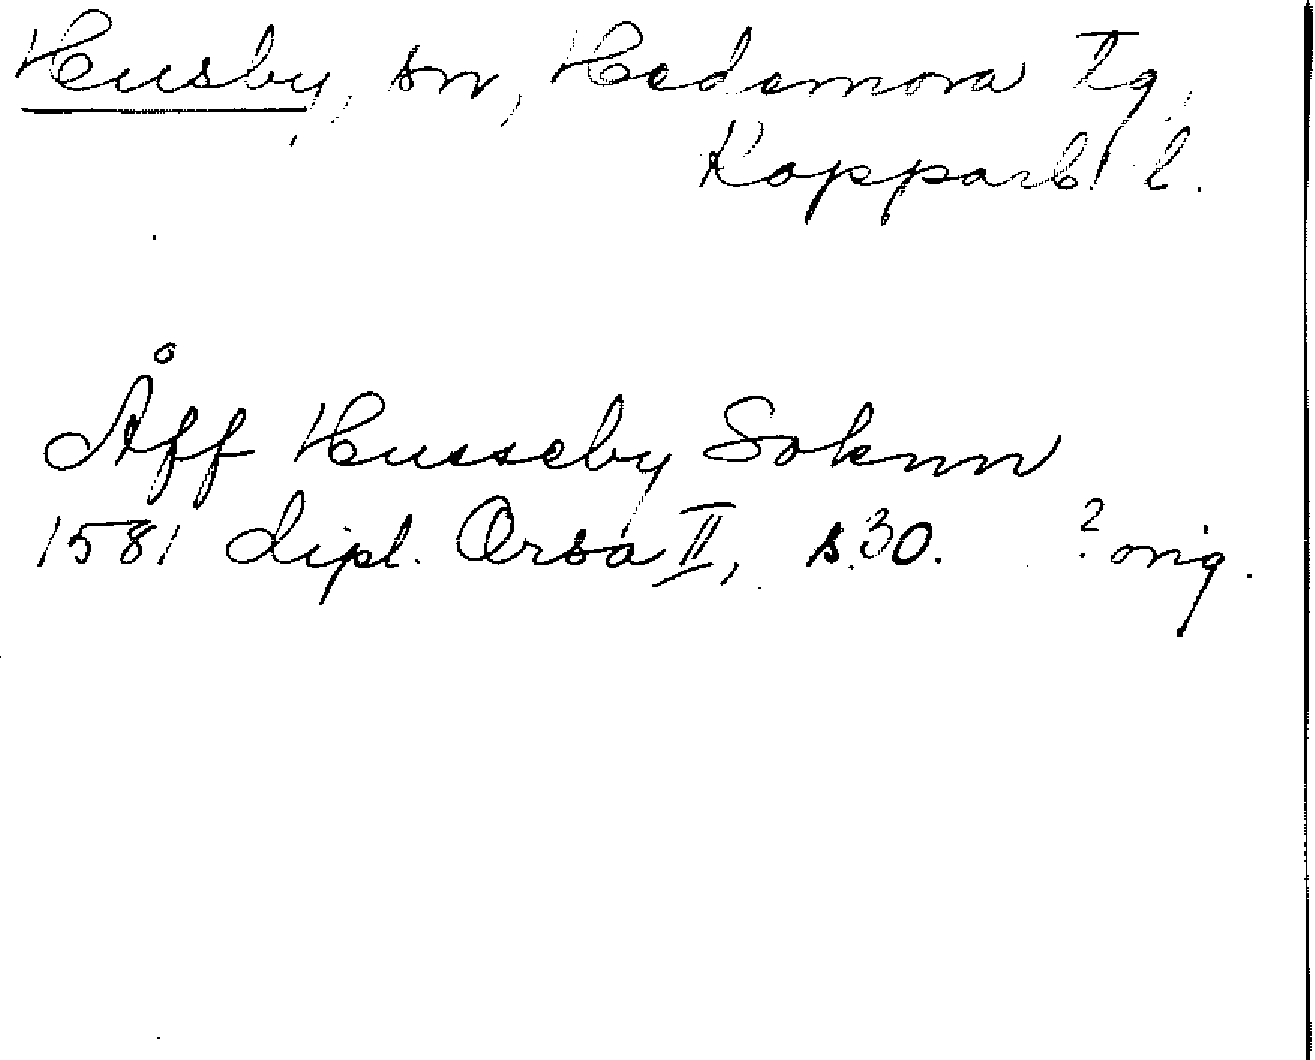 Husby, sn, Hedemora Tg,
Kopparb. l.
Åff Husseby Soknn
1581 dipl. Orsa II, s. 30. ? orig.